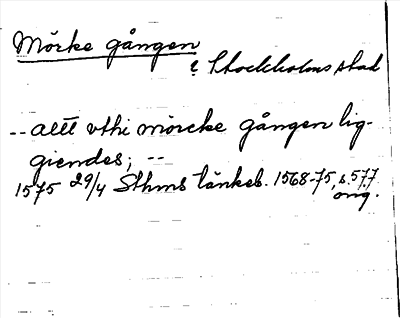 Mörke gången
i Stockholms stad
-- allt vthi mörcke gången lig-
giendes; --
1575 29/4 Sthms tänkeb. 1568-75, s. 577.
orig.